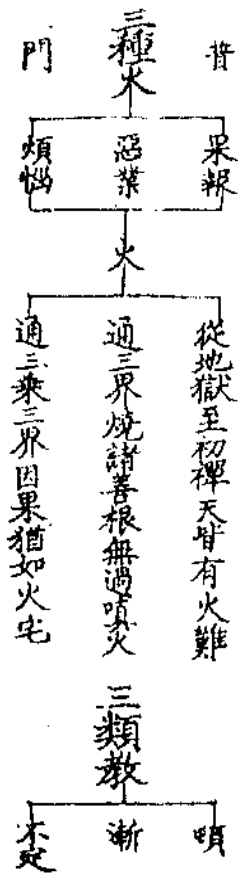 普
門
三種火
果報
惡業
煩惱
火
從地獄至初禪天皆有火難
通三界燒諸善根無過嗔火
通三乘三界因果猶如火宅
三類教
頓
漸
不定